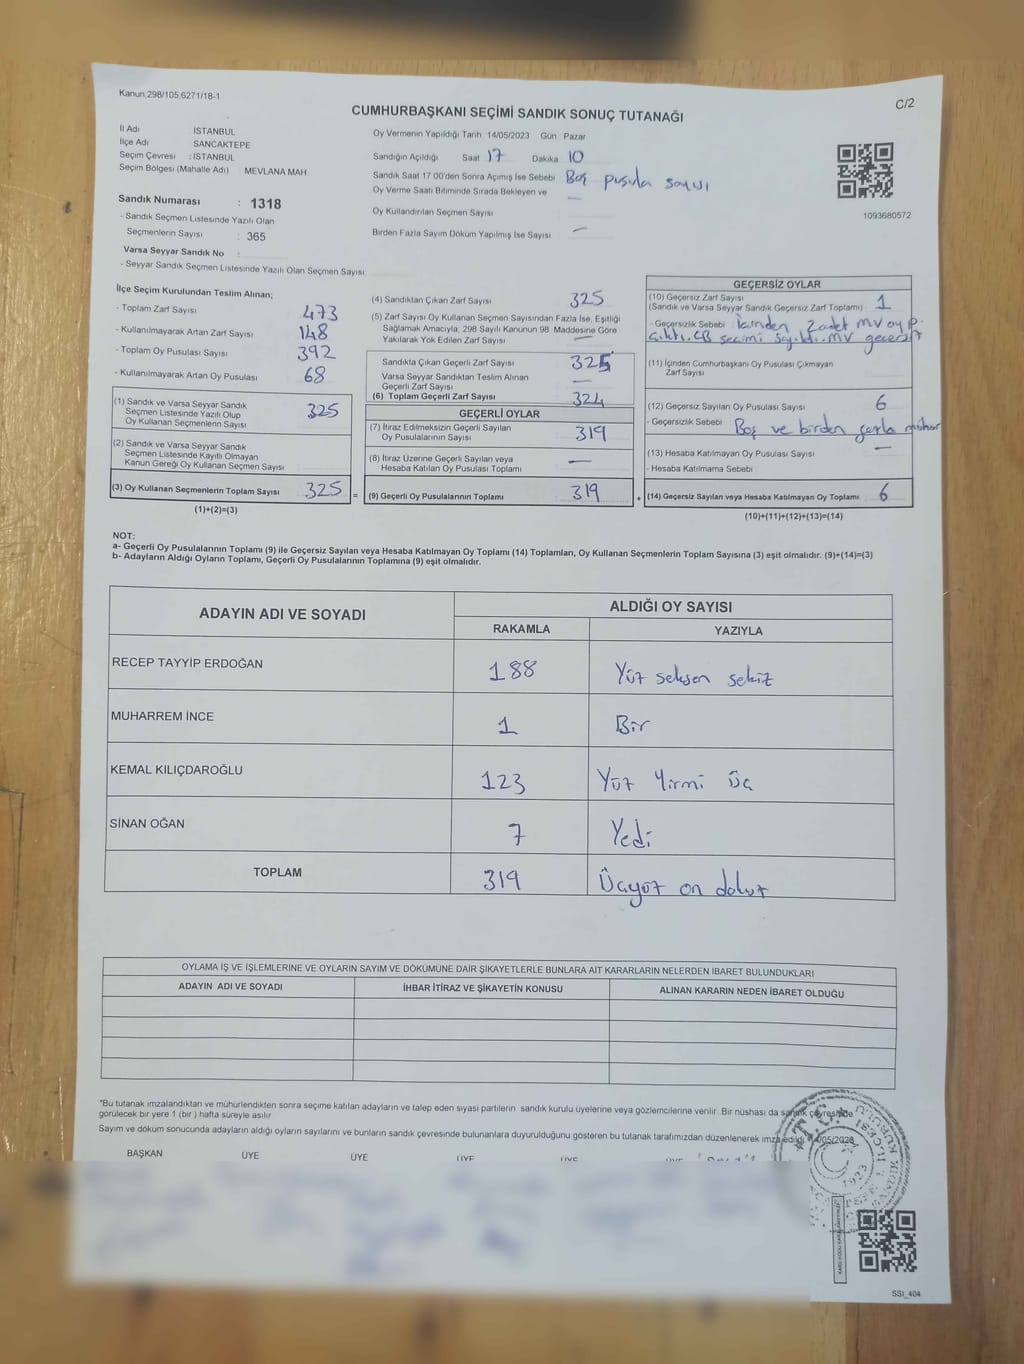 Kanun 298/105,6271/18-1
C/2
CUMHURBAŞKANI SEÇİMİ SANDIK SONUÇ TUTANAĞI
İl Adı İSTANBUL
İlçe Adı SANCAKTEPE
Seçim Çevresi : İSTANBUL
Seçim Bölgesi (Mahalle Adı) MEVLANA MAH
Sandık Numarası : 1318
- Sandık Seçmen Listesinde Yazılı Olan
Seçmenlerin Sayısı : 365
Varsa Seyyar Sandık No :
- Seyyar Sandık Seçmen Listesinde Yazılı Olan Seçmen Sayısı:
Oy Vermenin Yapıldığı Tarih 14/05/2023 Gün Pazar
Sandığın Açıldığı Saat 17 Dakika 10
Sandık Saat 17 00'den Sonra Açımış İse Sebebi Boş pusula sayısı
Oy Verme Saati Bitiminde Sırada Bekleyen ve —
Oy Kullandırılan Seçmen Sayısı
Birden Fazla Sayım Döküm Yapılmış İse Sayısı —
1093680572
İlçe Seçim Kurulundan Teslim Alınan;
- Toplam Zarf Sayısı 473
- Kullanılmayarak Artan Zarf Sayısı 148
- Toplam Oy Pusulası Sayısı 392
- Kullanılmayarak Artan Oy Pusulası 68
(1) Sandık ve Varsa Seyyar Sandık
Seçmen Listesinde Yazılı Olup
Oy Kullanan Seçmenlerin Sayısı 325
(2) Sandık ve Varsa Seyyar Sandık
Seçmen Listesinde Kayıtlı Olmayan
Kanun Gereği Oy Kullanan Seçmen Sayısı
(3) Oy Kullanan Seçmenlerin Toplam Sayısı 325 =
(1)+(2)=(3)
(4) Sandıktan Çıkan Zarf Sayısı 325
(5) Zarf Sayısı Oy Kullanan Seçmen Sayısından Fazla İse, Eşitliği
Sağlamak Amacıyla, 298 Sayılı Kanunun 98 Maddesine Göre
Yakılarak Yok Edilen Zarf Sayısı —
Sandıkta Çıkan Geçerli Zarf Sayısı 325
Varsa Seyyar Sandıktan Teslim Alınan
Geçerli Zarf Sayısı —
(6) Toplam Geçerli Zarf Sayısı 324
GEÇERLİ OYLAR
(7) İtiraz Edilmeksizin Geçerli Sayılan
Oy Pusulalarının Sayısı 319
(8) İtiraz Üzerine Geçerli Sayılan veya
Hesaba Katılan Oy Pusulası Toplamı —
(9) Geçerli Oy Pusulalarının Toplamı 319 +
GEÇERSİZ OYLAR
(10) Geçersiz Zarf Sayısı 1
(Sandık ve Varsa Seyyar Sandık Geçersiz Zarf Toplamı)
- Geçersizlik Sebebi İçinden 2 adet MV oy p.
çıktı. CB seçimi sayıldı. MV geçersiz
(11) İçinden Cumhurbaşkanı Oy Pusulası Çıkmayan
Zarf Sayısı
(12) Geçersiz Sayılan Oy Pusulası Sayısı 6
- Geçersizlik Sebebi Boş ve birden fazla mühür
(13) Hesaba Katılmayan Oy Pusulası Sayısı —
- Hesaba Katılmama Sebebi
(14) Geçersiz Sayılan veya Hesaba Katılmayan Oy Toplamı 6
(10)+(11)+(12)+(13)=(14)
NOT:
a- Geçerli Oy Pusulalarının Toplamı (9) ile Geçersiz Sayılan veya Hesaba Katılmayan Oy Toplamı (14) Toplamları, Oy Kullanan Seçmenlerin Toplam Sayısına (3) eşit olmalıdır. (9)+(14)=(3)
b- Adayların Aldığı Oyların Toplamı, Geçerli Oy Pusulalarının Toplamına (9) eşit olmalıdır.
ADAYIN ADI VE SOYADI ALDIĞI OY SAYISI
RAKAMLA YAZIYLA
RECEP TAYYİP ERDOĞAN 188 Yüz seksen sekiz
MUHARREM İNCE 1 Bir
KEMAL KILIÇDAROĞLU 123 Yüz Yirmi Üç
SİNAN OĞAN 7 Yedi
TOPLAM 319 Üçyüz on dokuz
OYLAMA İŞ VE İŞLEMLERİNE VE OYLARIN SAYIM VE DÖKÜMÜNE DAİR ŞİKAYETLERLE BUNLARA AİT KARARLARIN NELERDEN İBARET BULUNDUKLARI
ADAYIN ADI VE SOYADI İHBAR İTİRAZ VE ŞİKAYETİN KONUSU ALINAN KARARIN NEDEN İBARET OLDUĞU
"Bu tutanak imzalandıktan ve mühürlendikten sonra seçime katılan adayların ve talep eden siyasi partilerin sandık kurulu üyelerine veya gözlemcilerine verilir Bir nüshası da sandık çevresinde
görülecek bir yere 1 (bir ) hafta süreyle asılır
Sayım ve döküm sonucunda adayların aldığı oyların sayılarını ve bunların sandık çevresinde bulunanlara duyurulduğunu gösteren bu tutanak tarafımızdan düzenlenerek imza edildi 14/05/2023
BAŞKAN ÜYE ÜYE ÜYE ÜYE
T.C.
1923
SSI_404